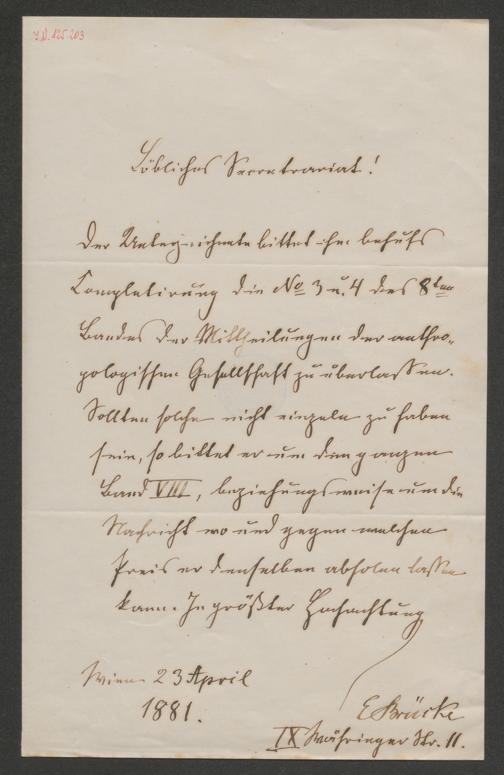 I.N. 125.203
Löbliches Secretariat!
Der Unterzeichnete bittet ihm behufs
Completirung die No 3 u. 4 des 8ten
Bandes der Mittheilungen der anthro-
pologischen Gesellschaft zu überlassen.
Sollten solche nicht einzeln zu haben
sein, so bittet er um den ganzen
Band VIII, beziehungsweise um die
Nachricht wo und gegen welchen
Preis er denselben abholen lassen
kann. In größter Hochachtung
Wien 23 April
1881.
E Brücke
IX Währinger Str. 11.